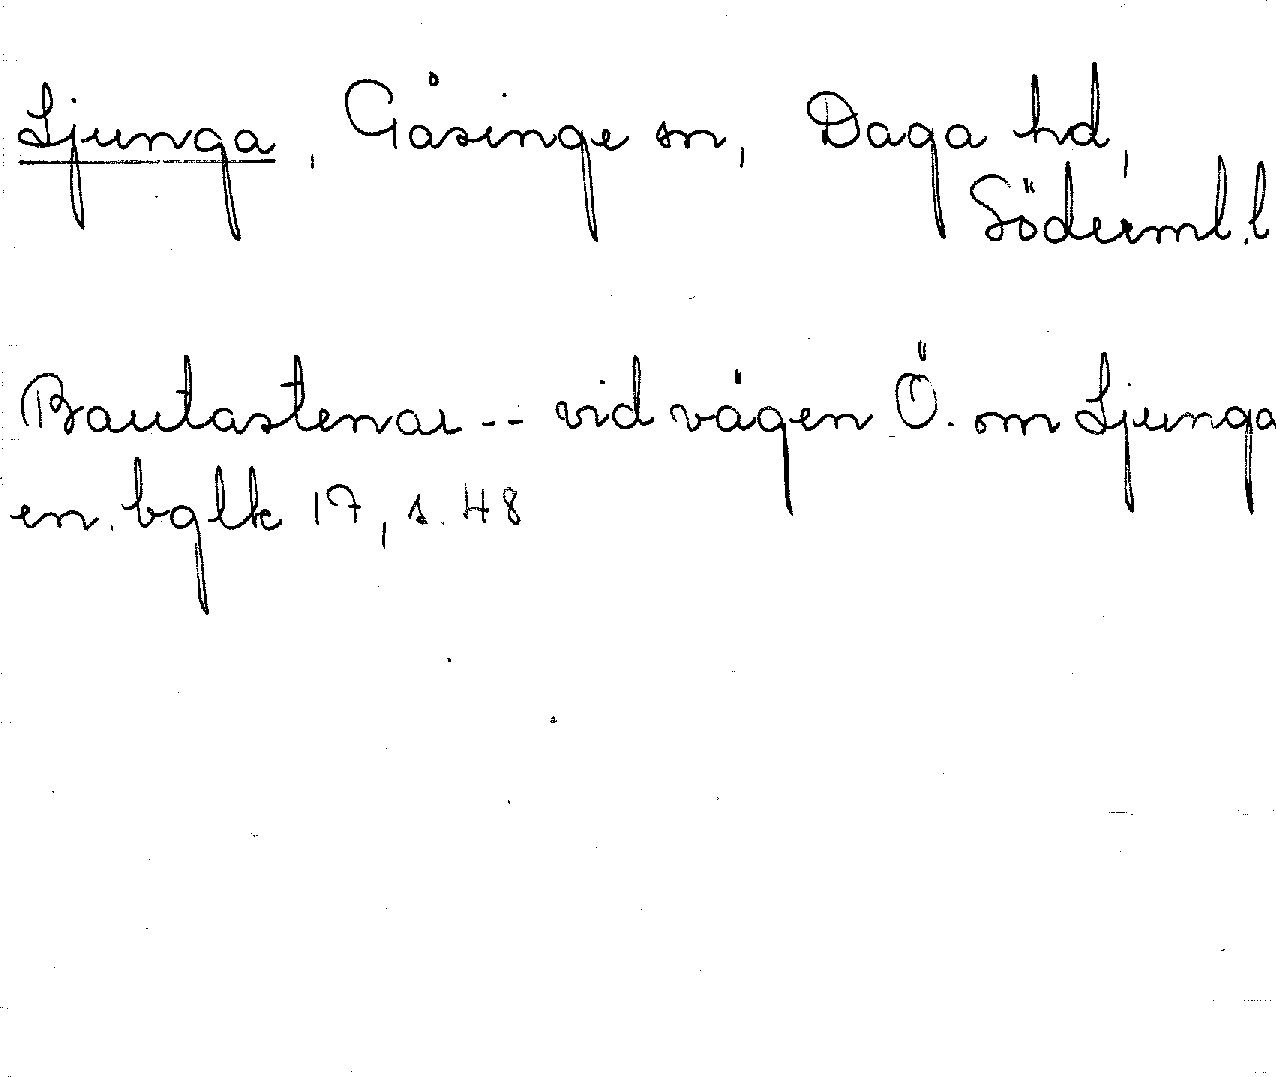 Ljunga, Gåsinge sn, Daga hd,
Söderml.l
Bautastenar -- vid vägen Ö. om Ljunga
en. bglk 17, s. 48